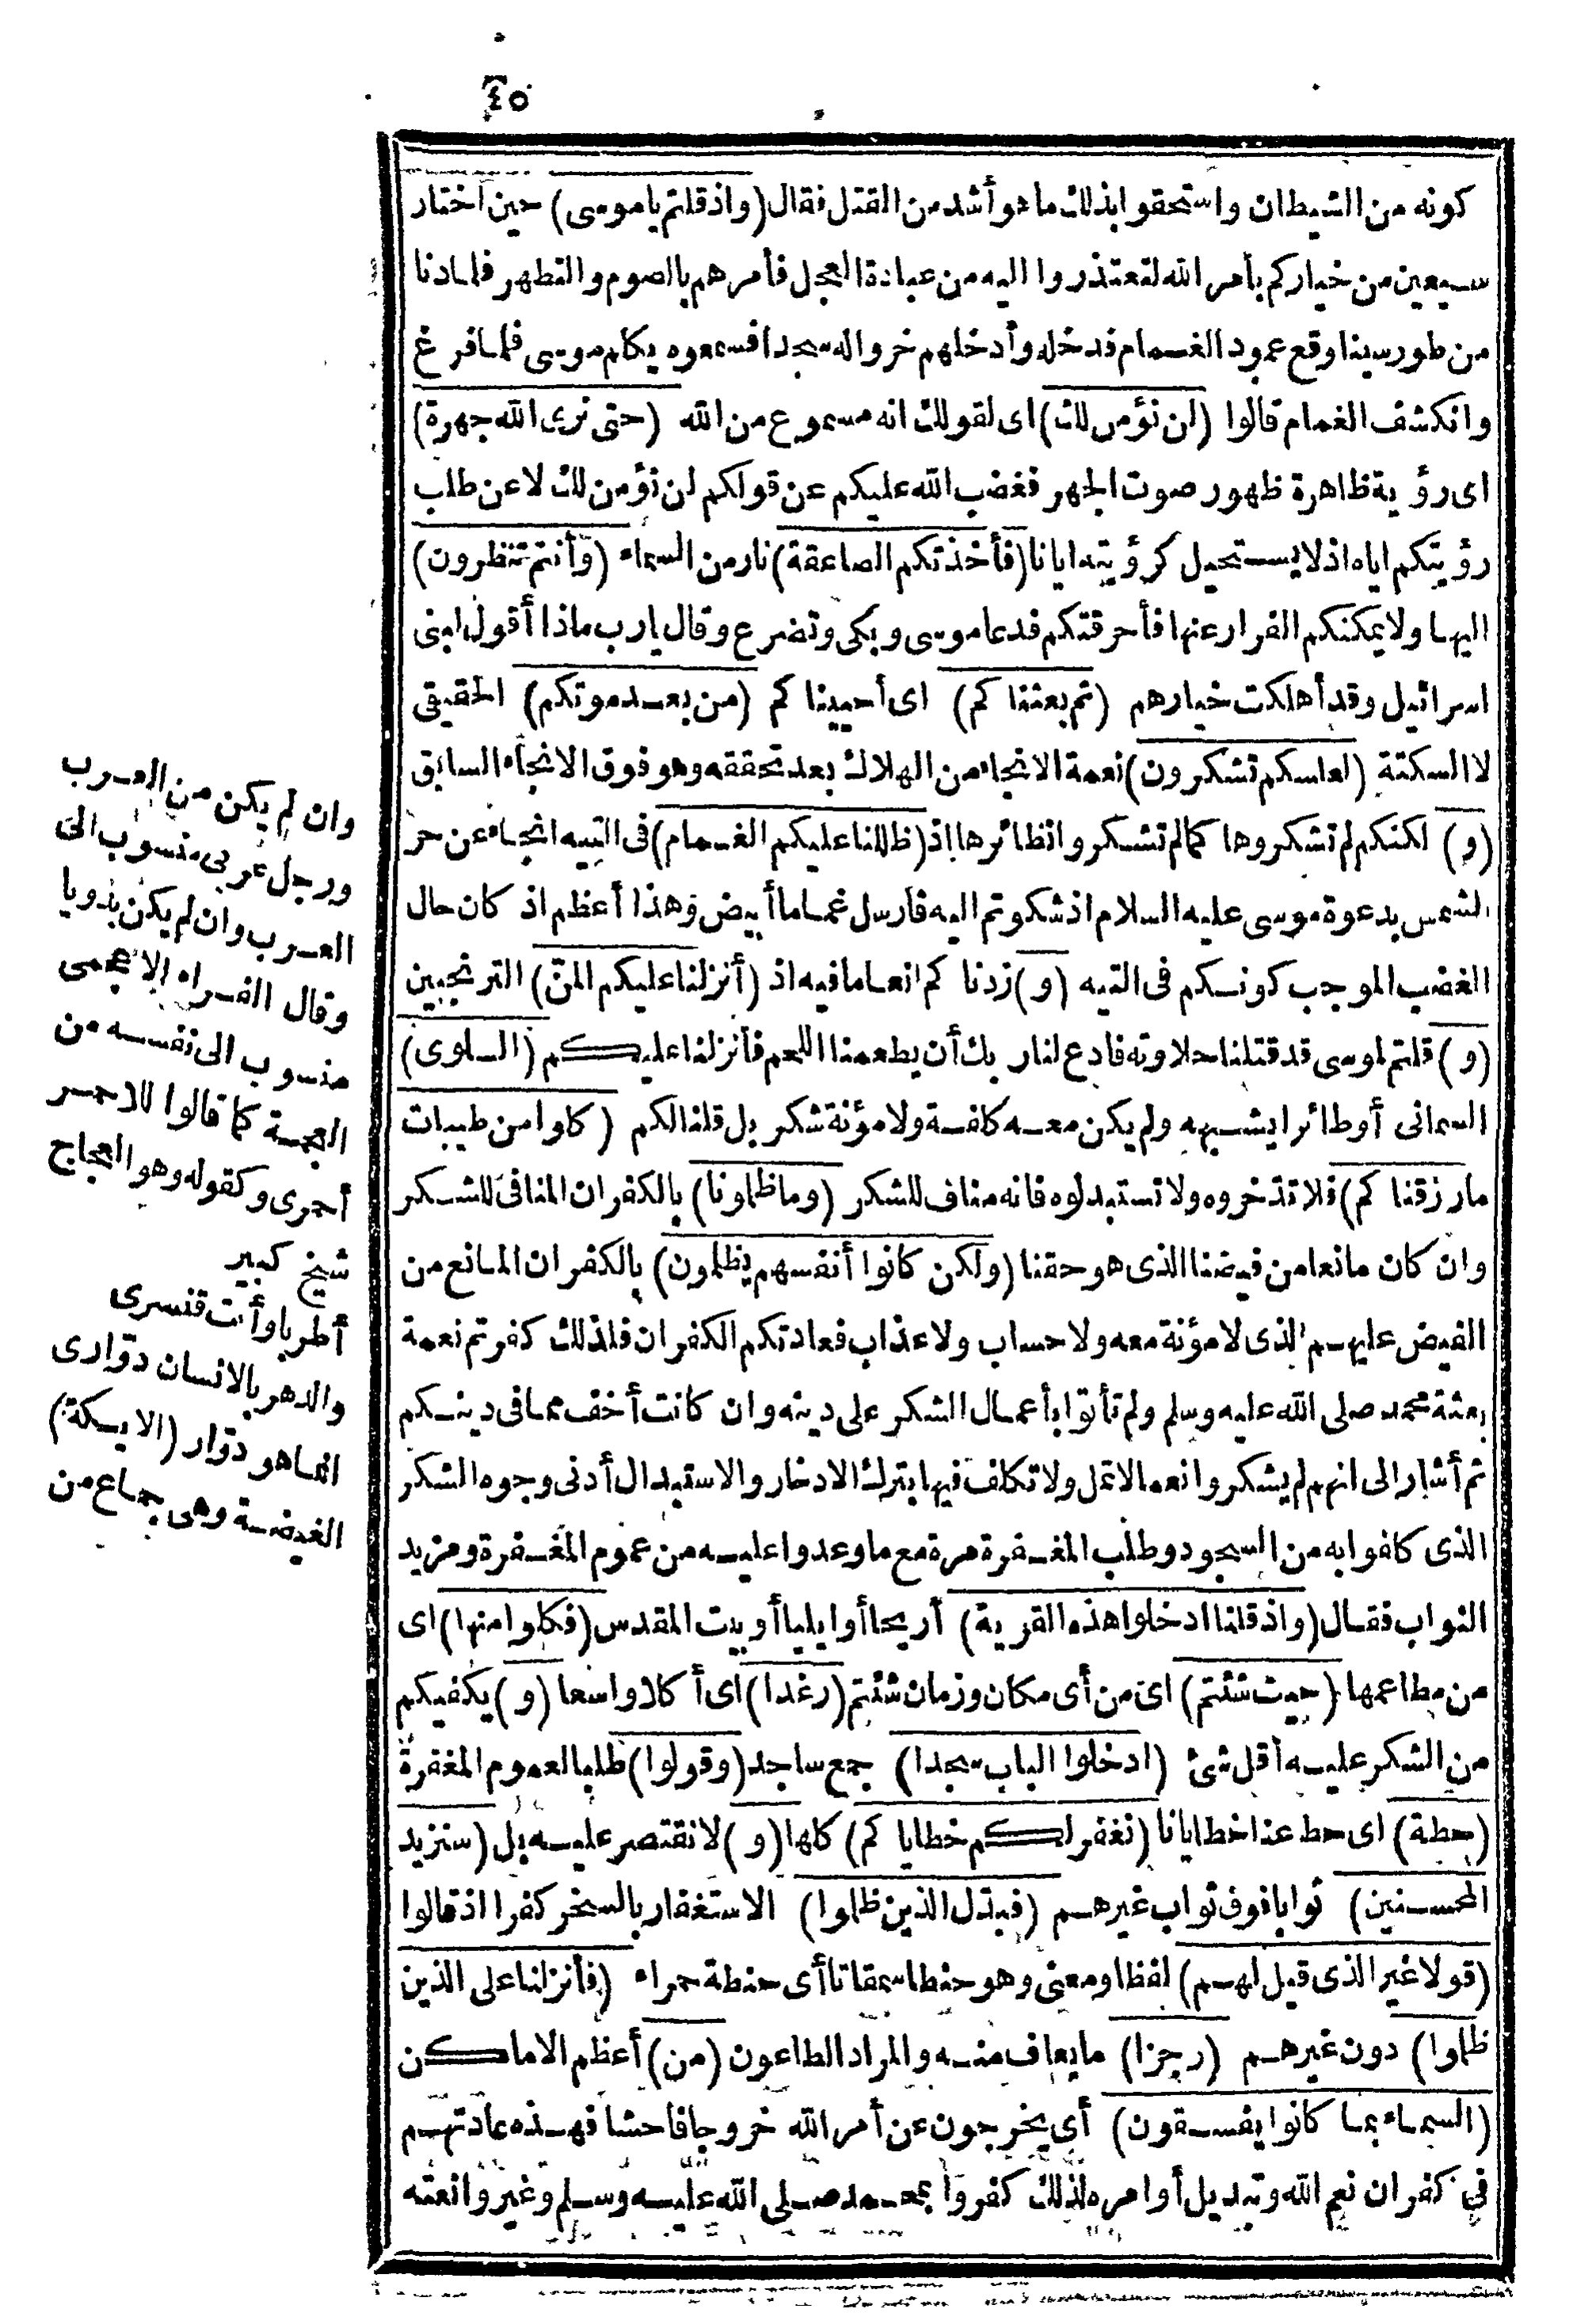 ٤٥
كونه من الشيطان واستحقوا بذلك ما هو أشد من القتل فقال (واذ قلتم يا موسى) حين اختار
سبعين من خياركم بأمر الله لتعتذروا اليه من عبادة العجل فأمرهم بالصوم والتطهر فلما دنا
من طور سينا وقع عمود الغمام فدخله وأدخلهم خروا له سجدا فسمعوه يكلم موسى فلما فرغ
وانكشف الغمام قالوا (لن نؤمن لك) اى لقولك انه مسموع من الله (حتى نرى الله جهرة)
اى رؤية ظاهرة ظهور صوت الجهر فغضب الله عليكم عن قولكم لن نؤمن لك لا عن طلب
رؤيتكم اياه اذ لا يستحيل كرؤيته ايانا (فأخذتكم الصاعقة) نار من السماء (وأنتم تنظرون)
اليها ولا يمكنكم الفرار عنها فأحرقتكم فدعا موسى وبكى وتضرع وقال يارب ماذا أقول لبنى
اسرائيل وقد أهلكت خيارهم (ثم بعثنا كم) اى أحيينا كم (من بعد موتكم) الحقيقى
لا السكتة (لعلكم تشكرون) نعمة الانجاء من الهلاك بعد تحققه وهو فوق الانجاء السابق
(و) لكنكم لم تشكروها كما لم تشكروا نظائرها اذ (ظللنا عليكم الغمام) فى التيه انجاء عن حر
الشمس بدعوة موسى عليه السلام اذ شكوتم اليه فأرسل غماما أبيض وهذا أعظم اذ كان حال
الغضب الموجب كونكم فى التيه (و) زدنا كم انعاما فيه اذ (أنزلنا عليكم المنّ) الترنجبين
(و) قلتم لموسى قد قتلنا حلاوته فادع لنا ربك أن يطعمنا اللحم فأنزلنا عليكم (السلوى)
السمانى أو طائرا يشبهه ولم يكن معه كلفة ولا مؤنة شكر بل قلنا لكم (كلوا من طيبات
ما رزقنا كم) فلا تدخروه ولا تستبدلوه فانه مناف للشكر (وما ظلمونا) بالكفران المنافى للشكر
وان كان مانعا من فيضنا الذى هو حقنا (ولكن كانوا أنفسهم يظلمون) بالكفران المانع من
الفيض عليهم الذى لا مؤنة معه ولا حساب ولا عذاب فعادتكم الكفران فلذلك كفرتم نعمة
بعثة محمد صلى الله عليه وسلم ولم تأتوا بأعمال الشكر على دينه وان كانت أخف مما فى دينكم
ثم أشار الى انهم لم يشكروا نعما لا تمل ولا تكلف فيها بترك الادخار والاستبدال أدنى وجوه الشكر
الذى كلفوا به من السجود وطلب المغفرة مرة مع ما وعدوا عليه من عموم المغفرة ومزيد
الثواب فقال (واذ قلنا ادخلوا هذه القرية) أريحا أو ايليا أو بيت المقدس (فكلوا منها) اى
من مطاعمها (حيث شئتم) اى من أى مكان وزمان شئتم (رغدا) اى أكلا واسعا (و) يكفيكم
من الشكر عليه أقل شئ (ادخلوا الباب سجدا) جمع ساجد (وقولوا) طلبا لعموم المغفرة
(حطة) اى حط عنا خطايانا (نغفر لكم خطايا كم) كلها (و) لا نقتصر عليه بل (سنزيد
المحسنين) ثوابا فوق ثواب غيرهم (فبدّل الذين ظلموا) الاستغفار بالسخر كفرا اذ قالوا
(قولا غير الذى قيل لهم) لفظا ومعنى وهو حنطا سمقاتا أى حنطة حمراء (فأنزلنا على الذين
ظلموا) دون غيرهم (رجزا) ما يعاف منه والمراد الطاعون (من) أعظم الاماكن
(السماء بما كانوا يفسقون) أى يخرجون عن أمر الله خروجا فاحشا فهذه عادتهم
فى كفران نعم الله وتبديل أوامره لذلك كفروا بمحمد صلى الله عليه وسلم وغيروا نعته
وان لم يكن من العرب
ورجل عربى منسوب الى
العرب وان لم يكن بدويا
وقال الفراء الاعجمى
منسوب الى نفسه من
العجمة كما قالوا للاحمر
أحمرى وكقوله وهو العجاج
شيخ كبير
أطربا وأنت قنسرى
والدهر بالانسان دوّارى
انما هو دوّار (الايكة)
الغيضة وهى جماع من